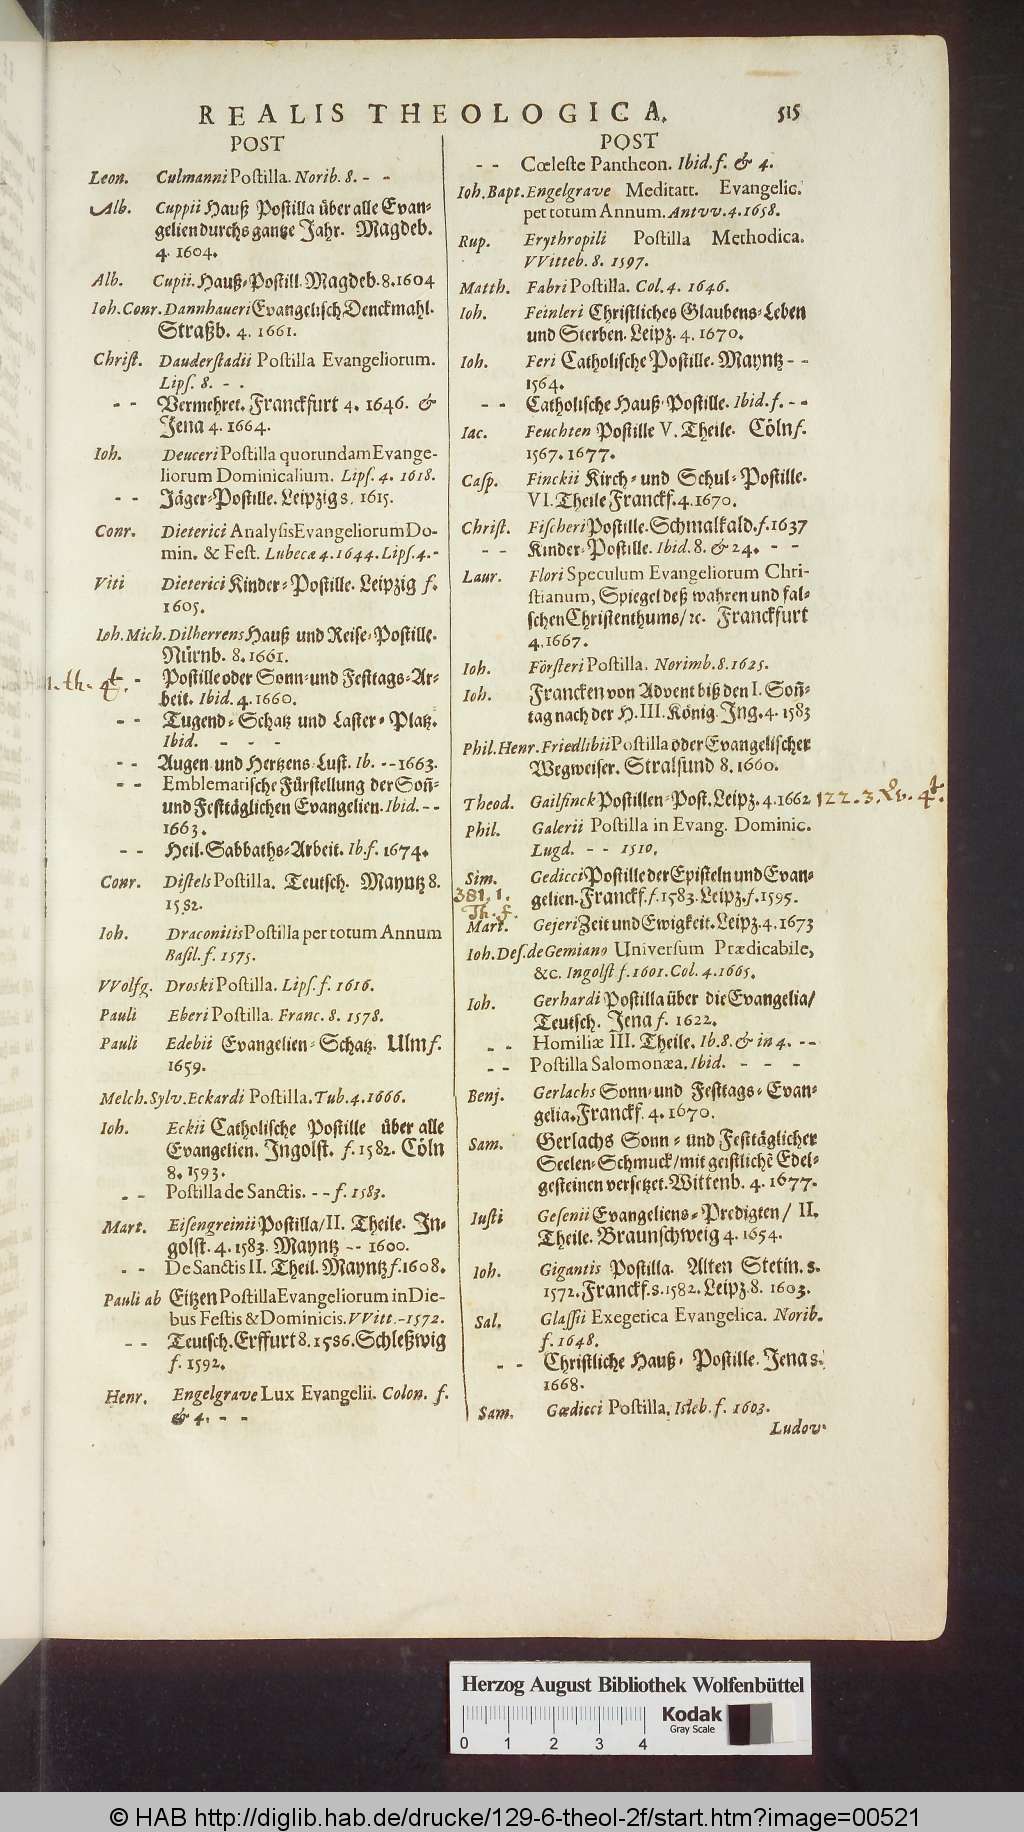 REALIS THEOLOGICA. 515
POST
Leon. Culmanni Postilla. Norib. 8. - -
Alb. Cuppii Hauß Postilla über alle Evan-
gelien durchs gantze Jahr. Magdeb.
4. 1604.
Alb. Cupii. Hauß-Postill. Magdeb. 8. 1604
Ioh. Conr. Dannhaueri Evangelisch Denckmahl.
Straßb. 4. 1661.
Christ. Dauderstadii Postilla Evangeliorum.
Lips. 8. - .
- - Vermehret. Franckfurt 4. 1646. &
Jena 4. 1664.
Ioh. Deuceri Postilla quorundam Evange-
liorum Dominicalium. Lips. 4. 1618.
- - Jäger-Postille. Leipzig 8. 1615.
Conr. Dieterici Analysis Evangeliorum Do-
min. & Fest. Lubecæ 4. 1644. Lips. 4. -
Viti Dieterici Kinder-Postille. Leipzig f.
1605.
Ioh. Mich. Dilherrens Hauß und Reise-Postille.
Nürnb. 8. 1661.
1. th. 4t. - Postille oder Sonn- und Festtags-Ar-
beit. Ibid. 4. 1660.
- - Tugend-Schatz und Laster-Platz.
Ibid. - - -
- - Augen und Hertzens-Lust. Ib. -- 1663.
- - Emblematische Fürstellung der Soñ-
und Festtäglichen Evangelien. Ibid. - -
1663.
- - Heil. Sabbaths-Arbeit. Ib. f. 1674.
Conr. Distels Postilla. Teutsch. Mayntz 8.
1582.
Ioh. Draconitis Postilla per totum Annum
Basil. f. 1575.
VVolfg. Droski Postilla. Lips. f. 1616.
Pauli Eberi Postilla. Franc. 8. 1578.
Pauli Edebii Evangelien-Schatz. Ulm f.
1659.
Melch. Sylv. Eckardi Postilla. Tub. 4. 1666.
Ioh. Eckii Catholische Postille über alle
Evangelien. Ingolst. f. 1582. Cöln
8. 1593.
- - Postilla de Sanctis. - - f. 1583.
Mart. Eisengreinii Postilla/ II. Theile. In-
golst. 4. 1583. Mayntz -- 1600.
- - De Sanctis II. Theil. Mayntz f. 1608.
Pauli ab Eitzen Postilla Evangeliorum in Die-
bus Festis & Dominicis. VVitt. - 1572.
- - Teutsch. Erffurt 8. 1586. Schleßwig
f. 1592.
Henr. Engelgrave Lux Evangelii. Colon. f.
& 4. - -
POST
- - Cœleste Pantheon. Ibid. f. & 4.
Ioh. Bapt. Engelgrave Meditatt. Evangelic.
per totum Annum. Antvv. 4. 1658.
Rup. Erythropili Postilla Methodica.
VVitteb. 8. 1597.
Matth. Fabri Postilla. Col. 4. 1646.
Ioh. Feinleri Christliches Glaubens-Leben
und Sterben. Leipz. 4. 1670.
Ioh. Feri Catholische Postille. Mayntz - -
1564.
- - Catholische Hauß-Postille. Ibid. f. - -
Iac. Feuchten Postille V. Theile. Cöln f.
1567. 1677.
Casp. Finckii Kirch- und Schul-Postille.
VI. Theile Franckf. 4. 1670.
Christ. Fischeri Postille. Schmalkald. f. 1637
- - Kinder-Postille. Ibid. 8. & 24. - -
Laur. Flori Speculum Evangeliorum Chri-
stianum, Spiegel deß wahren und fal-
schen Christenthums/ ꝛc. Franckfurt
4. 1667.
Ioh. Försteri Postilla. Norimb. 8. 1625.
Ioh. Francken von Advent biß den I. Soñ-
tag nach der H. III. König. Ing. 4. 1583
Phil. Henr. Friedlibii Postilla oder Evangelischer
Wegweiser. Stralsund 8. 1660.
Theod. Gailfinck Postillen-Post. Leipz. 4. 1662 122. 3. Qv. 4t.
Phil. Galerii Postilla in Evang. Dominic.
Lugd. - - 1510.
Sim. Gedicci Postille der Episteln und Evan-
381. 1.
gelien. Franckf. f. 1583. Leipz. f. 1595.
Th. f.
Mart. Gejeri Zeit und Ewigkeit. Leipz. 4. 1673
Ioh. Des. de Gemiano Universum Prædicabile,
&c. Ingolst f. 1601. Col. 4. 1665.
Ioh. Gerhardi Postilla über die Evangelia/
Teutsch. Jena f. 1622.
- - Homiliæ III. Theile. Ib. 8. & in 4. - -
- - Postilla Salomonæa. Ibid. - - -
Benj. Gerlachs Sonn- und Festtags-Evan-
gelia. Franckf. 4. 1670.
Sam. Gerlachs Sonn- und Festtäglicher
Seelen-Schmuck/ mit geistlichẽ Edel-
gesteinen versetzet. Wittenb. 4. 1677.
Iusti Gesenii Evangeliens-Predigten/ II.
Theile. Braunschweig 4. 1654.
Ioh. Gigantis Postilla. Alten Stetin. 8.
1572. Franckf. 8. 1582. Leipz. 8. 1603.
Sal. Glassii Exegetica Evangelica. Norib.
f. 1648.
- - Christliche Hauß-Postille. Jena 8.
1668.
Sam. Gædicci Postilla. Isleb. f. 1603.
Ludov.
Herzog August Bibliothek Wolfenbüttel
Kodak
Gray Scale
0 1 2 3 4
© HAB http://diglib.hab.de/drucke/129-6-theol-2f/start.htm?image=00521